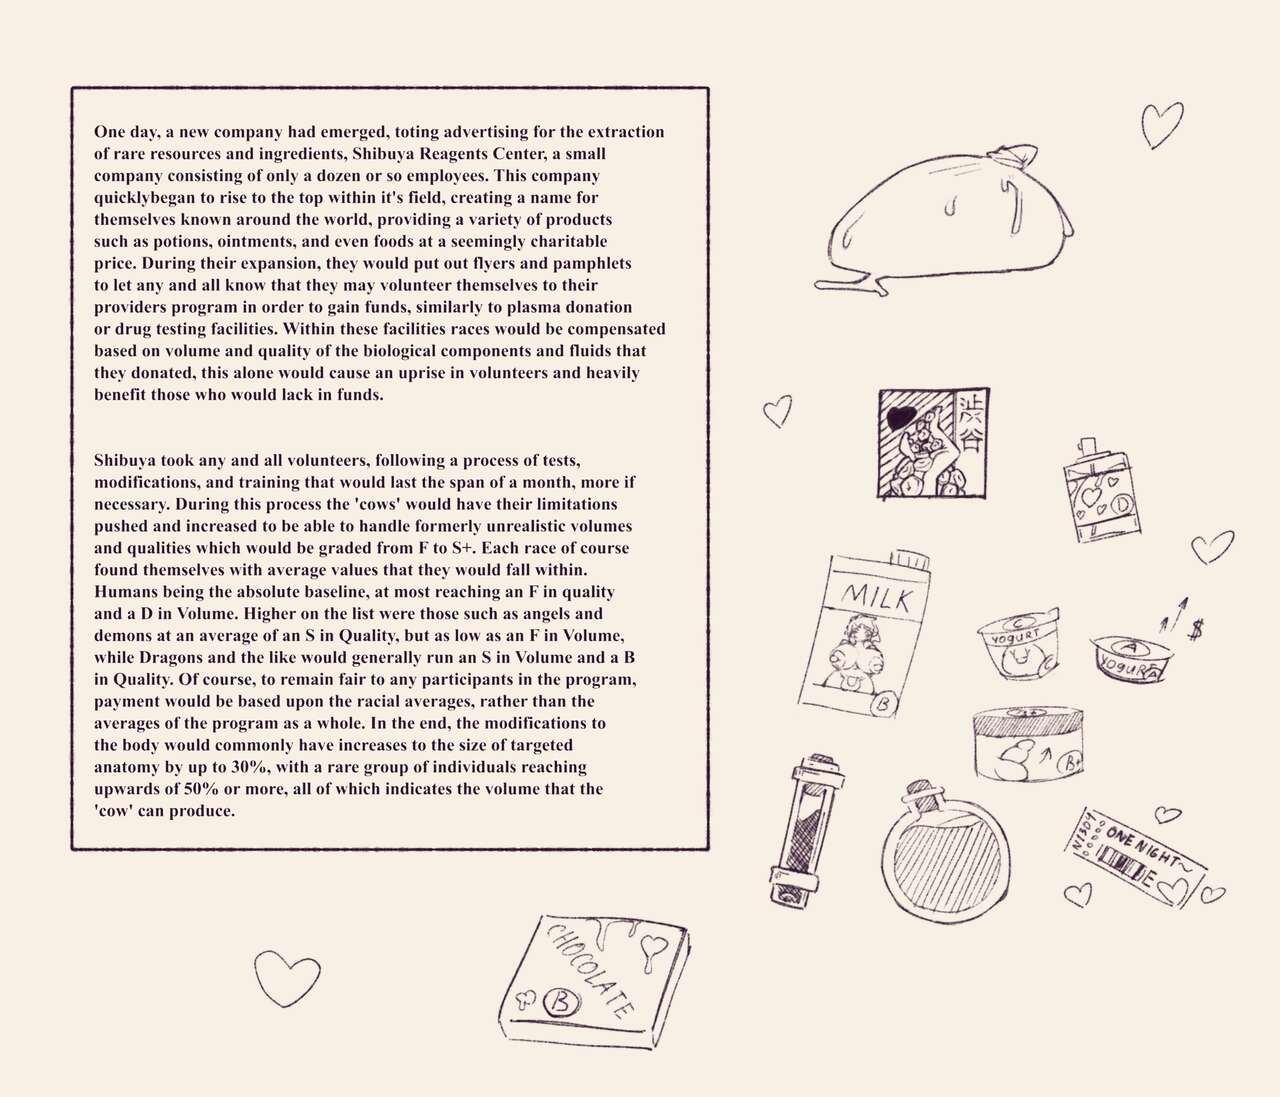 One day, a new company had emerged, toting advertising for the extraction
of rare resources and ingredients, Shibuya Reagents Center, a small
company consisting of only a dozen or so employees. This company
quicklybegan to rise to the top within it's field, creating a name for
themselves known around the world, providing a variety of products
such as potions, ointments, and even foods at a seemingly charitable
price. During their expansion, they would put out flyers and pamphlets
to let any and all know that they may volunteer themselves to their
providers program in order to gain funds, similarly to plasma donation
or drug testing facilities. Within these facilities races would be compensated
based on volume and quality of the biological components and fluids that
they donated, this alone would cause an uprise in volunteers and heavily
benefit those who would lack in funds.
Shibuya took any and all volunteers, following a process of tests,
modifications, and training that would last the span of a month, more if
necessary. During this process the 'cows' would have their limitations
pushed and increased to be able to handle formerly unrealistic volumes
and qualities which would be graded from F to S+. Each race of course
found themselves with average values that they would fall within.
Humans being the absolute baseline, at most reaching an F in quality
and a D in Volume. Higher on the list were those such as angels and
demons at an average of an S in Quality, but as low as an F in Volume,
while Dragons and the like would generally run an S in Volume and a B
in Quality. Of course, to remain fair to any participants in the program,
payment would be based upon the racial averages, rather than the
averages of the program as a whole. In the end, the modifications to
the body would commonly have increases to the size of targeted
anatomy by up to 30%, with a rare group of individuals reaching
upwards of 50% or more, all of which indicates the volume that the
'cow' can produce.
渋谷
D
MILK
B
C
YOGURT
C
A
YOGURT
A
$
B+
N1304
ONE NIGHT~
E
CHOCOLATE
B